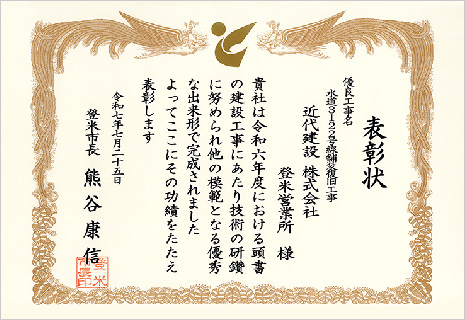 表彰状
優良工事名
水道3152号線舗装復旧工事
近代建設 株式会社
登米営業所 様
貴社は令和六年度における頭書
の建設工事にあたり技術の研鑽
に努められ他の模範となる優秀
な出来形で完成されました
よってここにその功績をたたえ
表彰します
令和七年七月二十五日
登米市長 熊谷康信